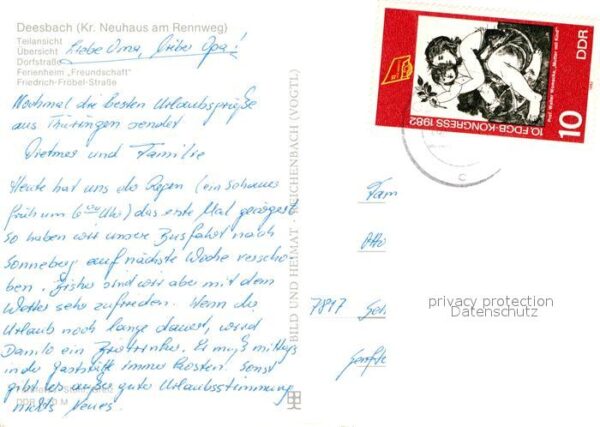 Deesbach (Kr. Neuhaus am Rennweg)
Teilansicht
Übersicht
Dorfstraße
Ferienheim „Freundschaft"
Friedrich-Fröbel-Straße
Liebe Oma, lieber Opa!
Nochmal die besten Urlaubsgrüße
aus Thüringen sendet
Dietmar und Familie
Heute hat uns der Regen (ein Schauer
früh um 6 00 Uhr) das erste Mal geärgert
so haben wir unsere Busfahrt nach
Sonneberg auf nächste Woche verscho-
ben. Bisher sind wir aber mit dem
Wetter sehr zufrieden. Wenn der
Urlaub noch lange dauert, wird
Danilo ein Biertrinker. Er muß mittags
in der Gaststätte immer kosten. Sonst
gibt es außer guter Urlaubsstimmung
nichts Neues.
DDR M
BILD UND HEIMAT REICHENBACH (VOGTL)
10. FDGB-KONGRESS 1982
Prof. Walter Womacka, „Mutter mit Kind"
DDR
10
Fam
Otto
7817
privacy protection
Datenschutz